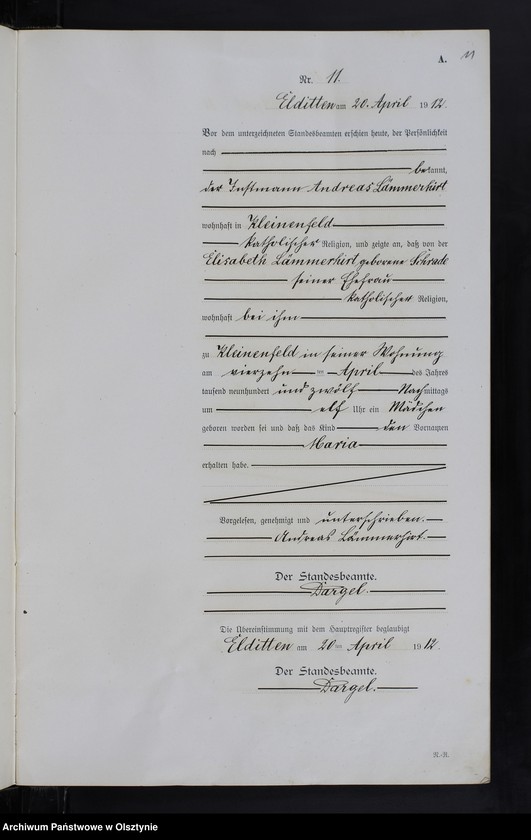 A. 11
Nr. 11.
Elditten am 20. April 1912.
Vor dem unterzeichneten Standesbeamten erschien heute, der Persönlichkeit
nach
bekannt,
der Instmann Andreas Lämmerhirt
wohnhaft in Kleinenfeld
katholischer Religion, und zeigte an, daß von der
Elisabeth Lämmerhirt geborene Schrade
seiner Ehefrau
katholischer Religion,
wohnhaft bei ihm
zu Kleinenfeld in seiner Wohnung
am vierzehn ten April des Jahres
tausend neunhundert und zwölf Nachmittags
um elf Uhr ein Mädchen
geboren worden sei und daß das Kind den Vornamen
Maria
erhalten habe.
Vorgelesen, genehmigt und unterschrieben.
Andreas Lämmerhirt.
Der Standesbeamte.
Dargel.
Die Übereinstimmung mit dem Hauptregister beglaubigt
Elditten am 20 ten April 1912.
Der Standesbeamte.
Dargel.
R.-R.
Archiwum Państwowe w Olsztynie